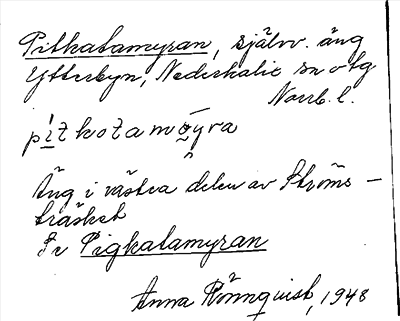 Pitkatamyran, självv. äng
Ytterbyn, Nederkalix sn o tg
Norrb. l.
pitkotamöyra
Äng i västra delen av Ströms-
träsket
Se Pigkatamyran
Anna Rönnquist, 1948